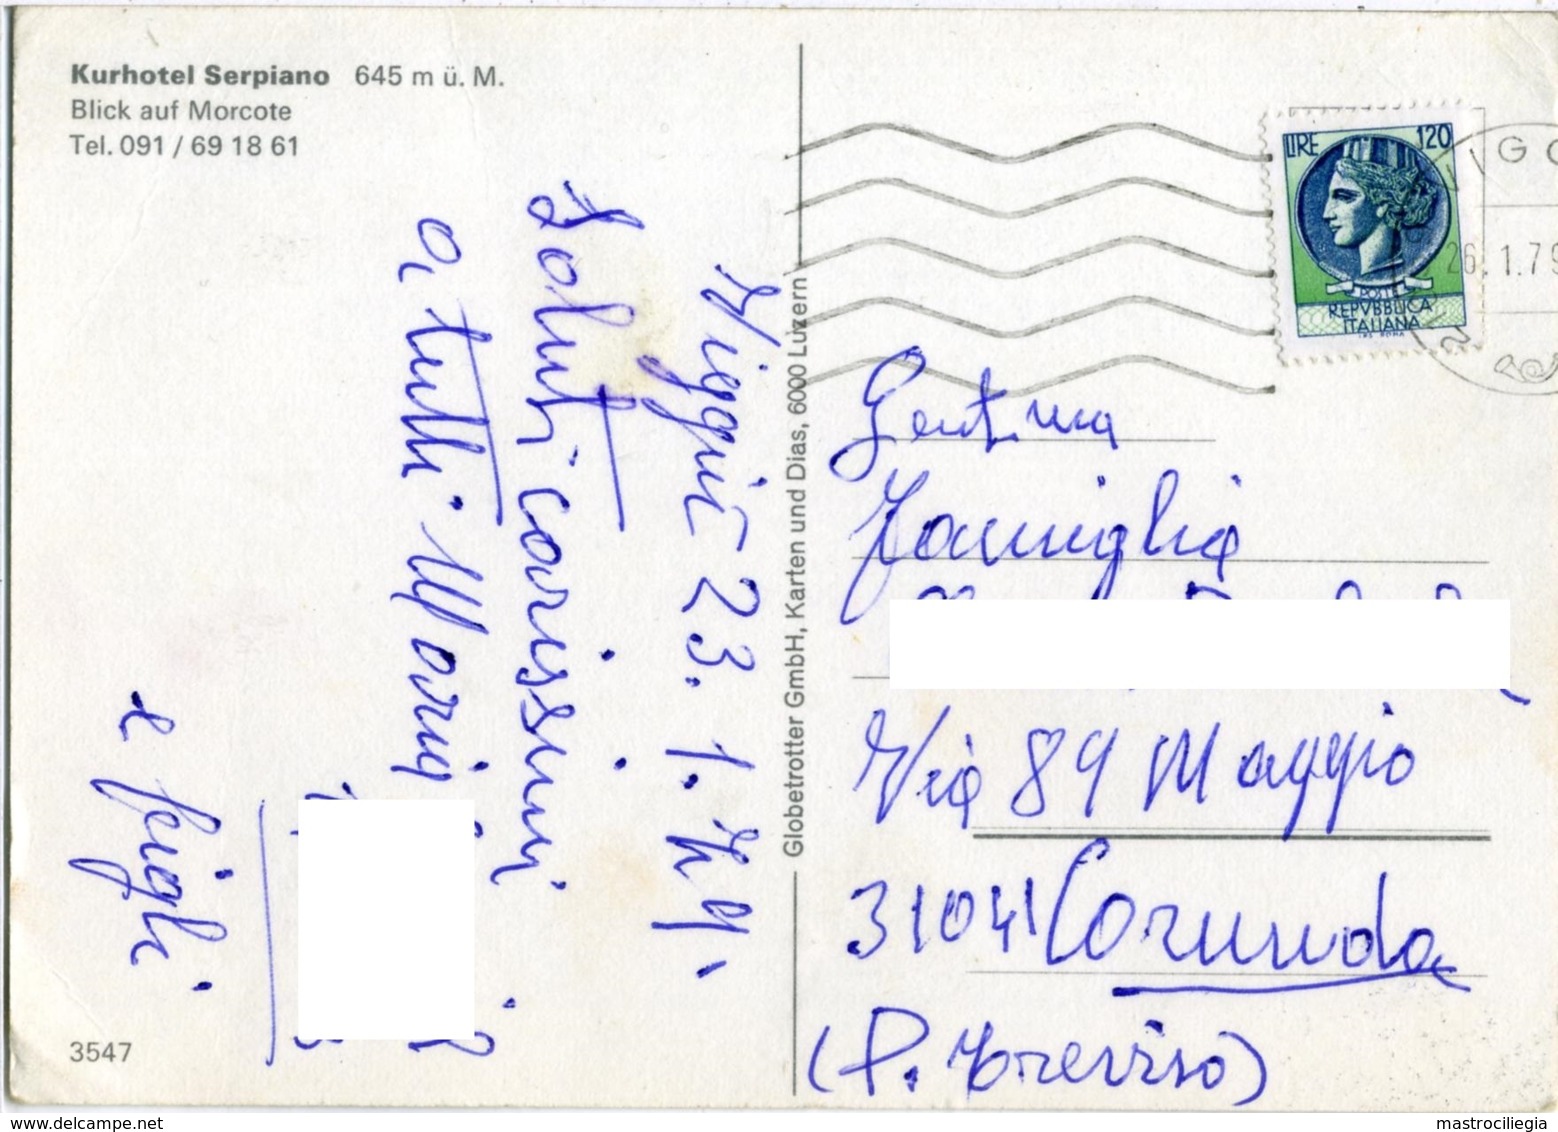 Kurhotel Serpiano 645 m ü. M.
Blick auf Morcote
Tel. 091 / 69 18 61
Viggiù 23.1.79.
Saluti carissimi
a tutti Maria
e figli.
3547
Globetrotter GmbH, Karten und Dias, 6000 Luzern
LIRE 120
POSTE
REPVBBLICA
ITALIANA
IGG
26.1.79
Gent.ma
Famiglia
Via 89 Maggio
31041 Cornuda
(P. Treviso)
www.delcampe.net
mastrociliegia